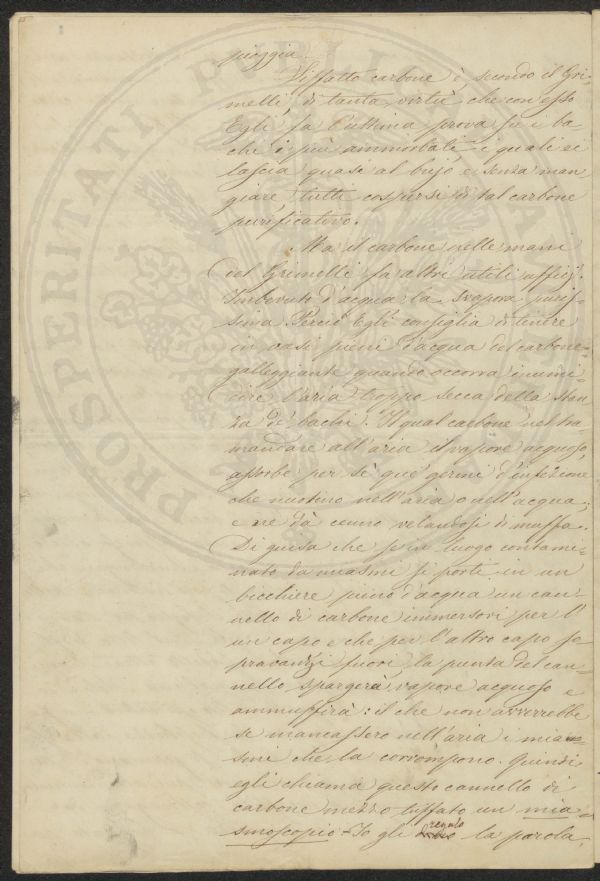 pioggia.
Siffatto carbone è, secondo il Gri-
melli, di tanta virtù, che con esso
Egli fa l'ultima prova su i ba-
chi i più ammorbati, i quali si
lascia quasi al bujo, e senza man-
giare, tutti cospersi di tal carbone
purificativo.
Ma il carbone nelle mani
del Grimelli fa altri utili ufficj.
Imbevuto d'acqua la svapora puris-
sima. Perciò Egli consiglia di tenere
in vasi pieni d'acqua del carbone
galleggiante quando occorra inumi-
dire l'aria troppo secca della stan-
za de' bachi. Il qual carbone nel tra-
mandare all'aria il vapore acquoso,
assorbe per sè que' germi d'infezione
che nuotino nell'aria o nell'acqua;
e ne dà cenno velandosi di muffa.
Di guisa che se in luogo contami-
nato da miasmi si porti in un
bicchiere pieno d'acqua un can-
nello di carbone immersovi per l'
un capo e che per l'altro capo so-
pravanzi fuori, la punta del can-
nello spargerà vapore acquoso e
ammuffirà: il che non avverrebbe
se mancassero nell'aria i mia-
smi che la corrompono. Quindi
egli chiama questo cannello di
carbone mezzo tuffato un mia-
smoscopio. Io gli regalo la parola,
PROSPERITATI PUBLICAE